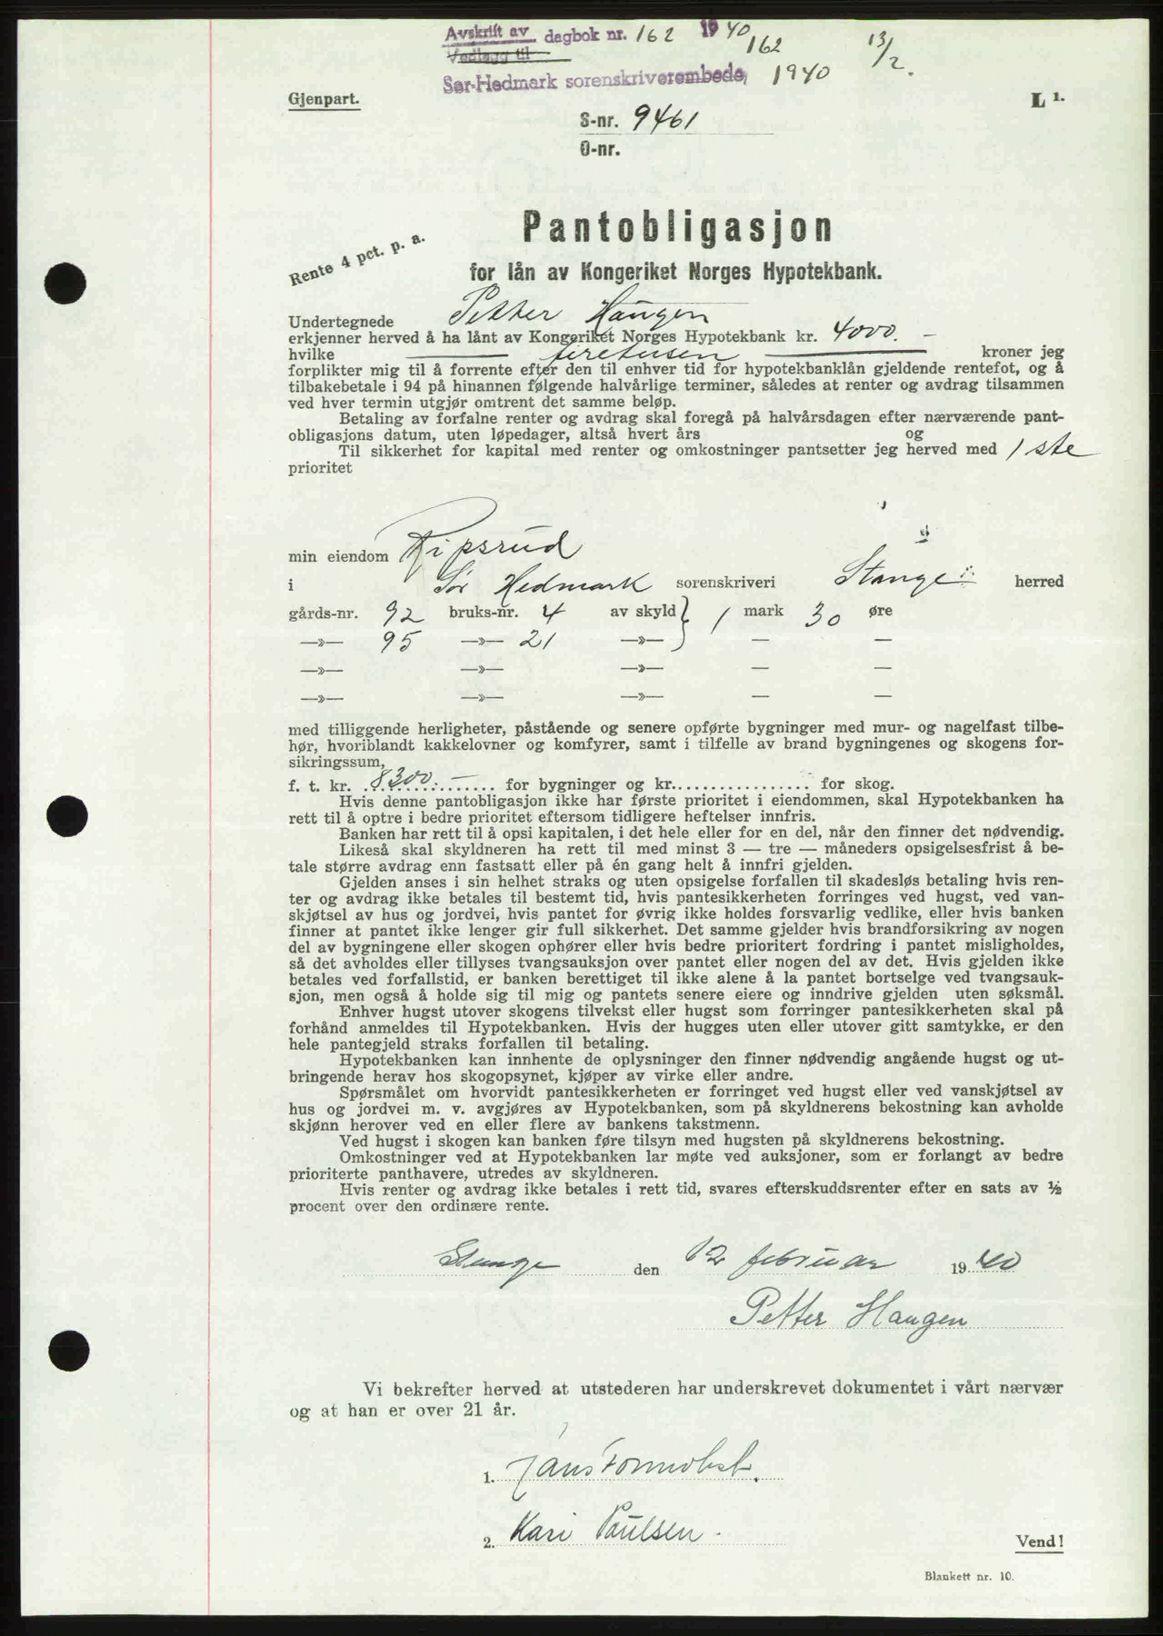 Avskrift av dagbok nr. 162 1940
Vedlegg til 162 13/2.
Sør-Hedmark sorenskriverembede, 1940
Gjenpart.
L 1.
S-nr. 9461
O-nr.
Pantobligasjon
Rente 4 pct. p. a.
for lån av Kongeriket Norges Hypotekbank.
Undertegnede Petter Haugen
erkjenner herved å ha lånt av Kongeriket Norges Hypotekbank kr. 4000. –
hvilke firetusen kroner jeg
forplikter mig til å forrente efter den til enhver tid for hypotekbanklån gjeldende rentefot, og å
tilbakebetale i 94 på hinannen følgende halvårlige terminer, således at renter og avdrag tilsammen
ved hver termin utgjør omtrent det samme beløp.
Betaling av forfalne renter og avdrag skal foregå på halvårsdagen efter nærværende pant-
obligasjons datum, uten løpedager, altså hvert års og
Til sikkerhet for kapital med renter og omkostninger pantsetter jeg herved med 1ste
prioritet
min eiendom Ripsrud
i Sør Hedmark sorenskriveri Stange herred
gårds-nr. 92 bruks-nr. 4 av skyld } 1 mark 30 øre
—»— 95 —»— 21 —»— — —
—»— —»— —»— — —
—»— —»— —»— — —
med tilliggende herligheter, påstående og senere opførte bygninger med mur- og nagelfast tilbe-
hør, hvoriblandt kakkelovner og komfyrer, samt i tilfelle av brand bygningenes og skogens for-
sikringssum,
f. t. kr. 8300. – for bygninger og kr. ................ for skog.
Hvis denne pantobligasjon ikke har første prioritet i eiendommen, skal Hypotekbanken ha
rett til å optre i bedre prioritet eftersom tidligere heftelser innfris.
Banken har rett til å opsi kapitalen, i det hele eller for en del, når den finner det nødvendig.
Likeså skal skyldneren ha rett til med minst 3 — tre — måneders opsigelsesfrist å be-
tale større avdrag enn fastsatt eller på én gang helt å innfri gjelden.
Gjelden anses i sin helhet straks og uten opsigelse forfallen til skadesløs betaling hvis ren-
ter og avdrag ikke betales til bestemt tid, hvis pantesikkerheten forringes ved hugst, ved van-
skjøtsel av hus og jordvei, hvis pantet for øvrig ikke holdes forsvarlig vedlike, eller hvis banken
finner at pantet ikke lenger gir full sikkerhet. Det samme gjelder hvis brandforsikring av nogen
del av bygningene eller skogen ophører eller hvis bedre prioritert fordring i pantet misligholdes,
så det avholdes eller tillyses tvangsauksjon over pantet eller nogen del av det. Hvis gjelden ikke
betales ved forfallstid, er banken berettiget til ikke alene å la pantet bortselge ved tvangsauk-
sjon, men også å holde sig til mig og pantets senere eiere og inndrive gjelden uten søksmål.
Enhver hugst utover skogens tilvekst eller hugst som forringer pantesikkerheten skal på
forhånd anmeldes til Hypotekbanken. Hvis der hugges uten eller utover gitt samtykke, er den
hele pantegjeld straks forfallen til betaling.
Hypotekbanken kan innhente de oplysninger den finner nødvendig angående hugst og ut-
bringende herav hos skogopsynet, kjøper av virke eller andre.
Spørsmålet om hvorvidt pantesikkerheten er forringet ved hugst eller ved vanskjøtsel av
hus og jordvei m. v. avgjøres av Hypotekbanken, som på skyldnerens bekostning kan avholde
skjønn herover ved en eller flere av bankens takstmenn.
Ved hugst i skogen kan banken føre tilsyn med hugsten på skyldnerens bekostning.
Omkostninger ved at Hypotekbanken lar møte ved auksjoner, som er forlangt av bedre
prioriterte panthavere, utredes av skyldneren.
Hvis renter og avdrag ikke betales i rett tid, svares efterskuddsrenter efter en sats av ½
procent over den ordinære rente.
Stange den 12 februar 1940
Petter Haugen
Vi bekrefter herved at utstederen har underskrevet dokumentet i vårt nærvær
og at han er over 21 år.
1.
2. Kari Paulsen.
Vend!
Blankett nr. 10.